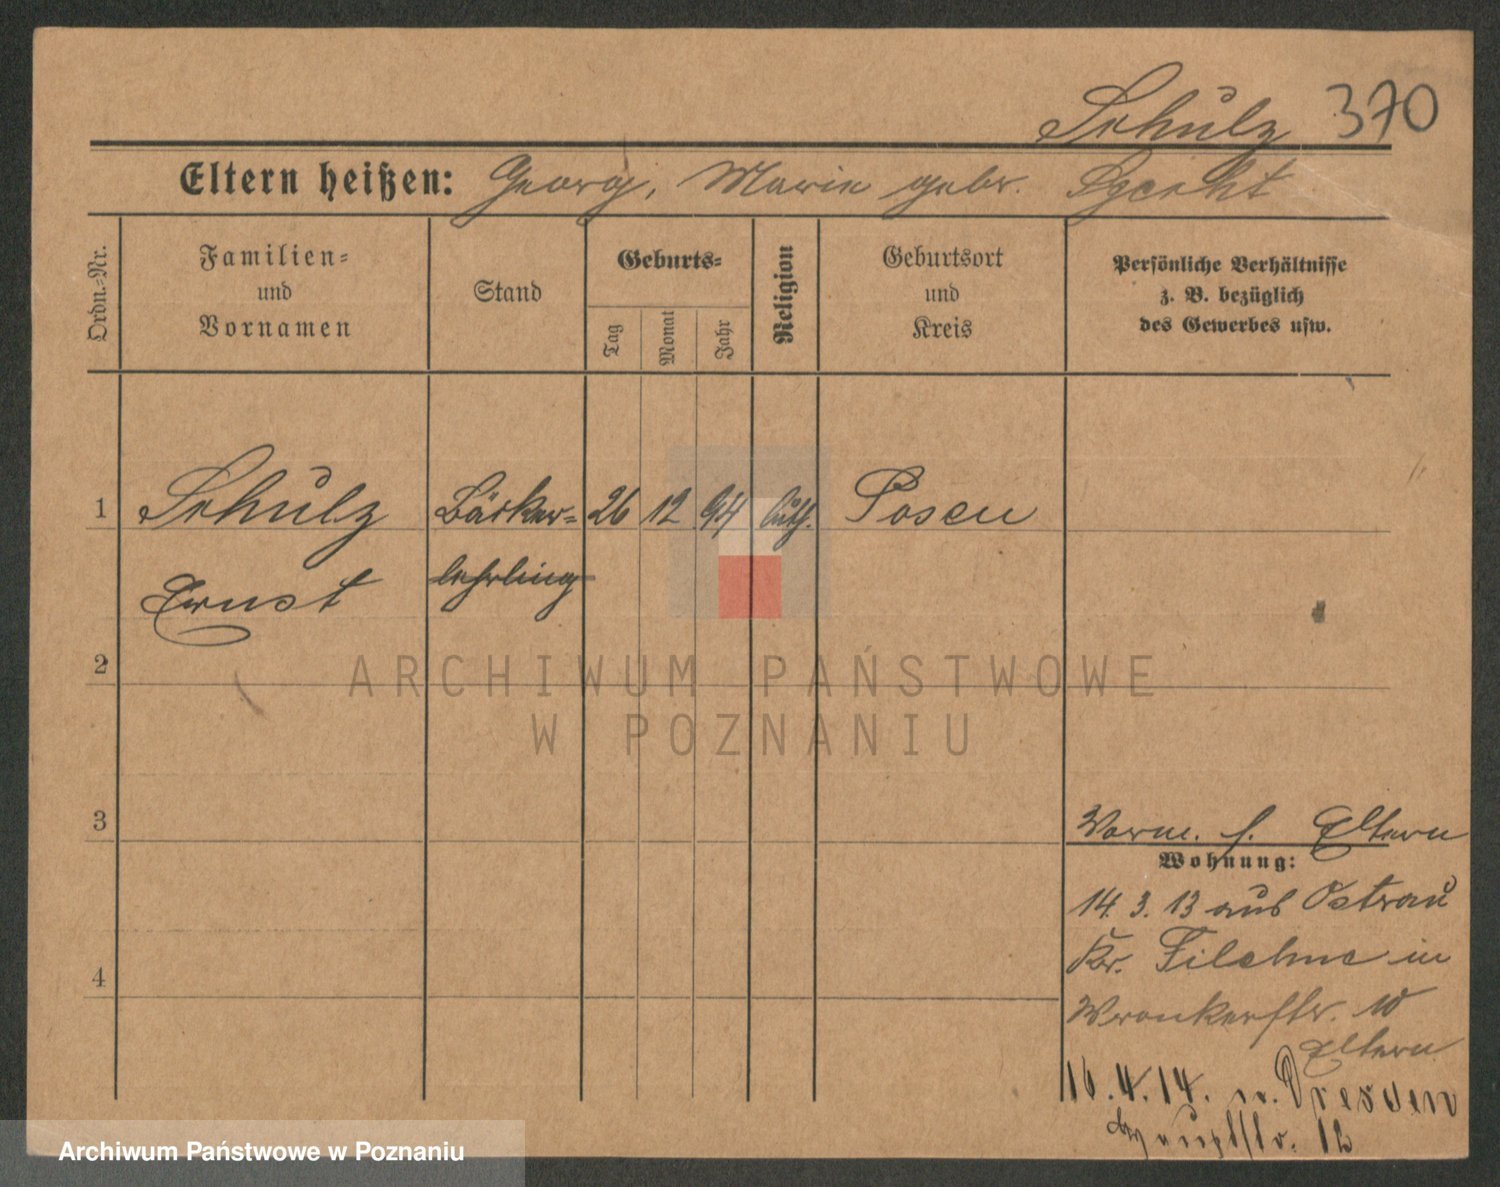 Schulz 370
Eltern heißen: Georg, Marie gebr. Specht
Ordn.-Nr.
Familien-
und
Vornamen
Stand
Geburts-
Tag
Monat
Jahr
Religion
Geburtsort
und
Kreis
Persönliche Verhältnisse
z. B. bezüglich
des Gewerbes usw.
1 Schulz Bäcker- 26 12 94 luth. Posen
Ernst lehrling
2
ARCHIWUM PAŃSTWOWE
W POZNANIU
3
Vorm. s. Eltern
Wohnung:
14. 3. 13 aus Ostrau
Kr. Filehne in
4
Wronkerstr. 10
Eltern
16. 4. 14. n. Dresden
Hauptstr. 12
Archiwum Państwowe w Poznaniu